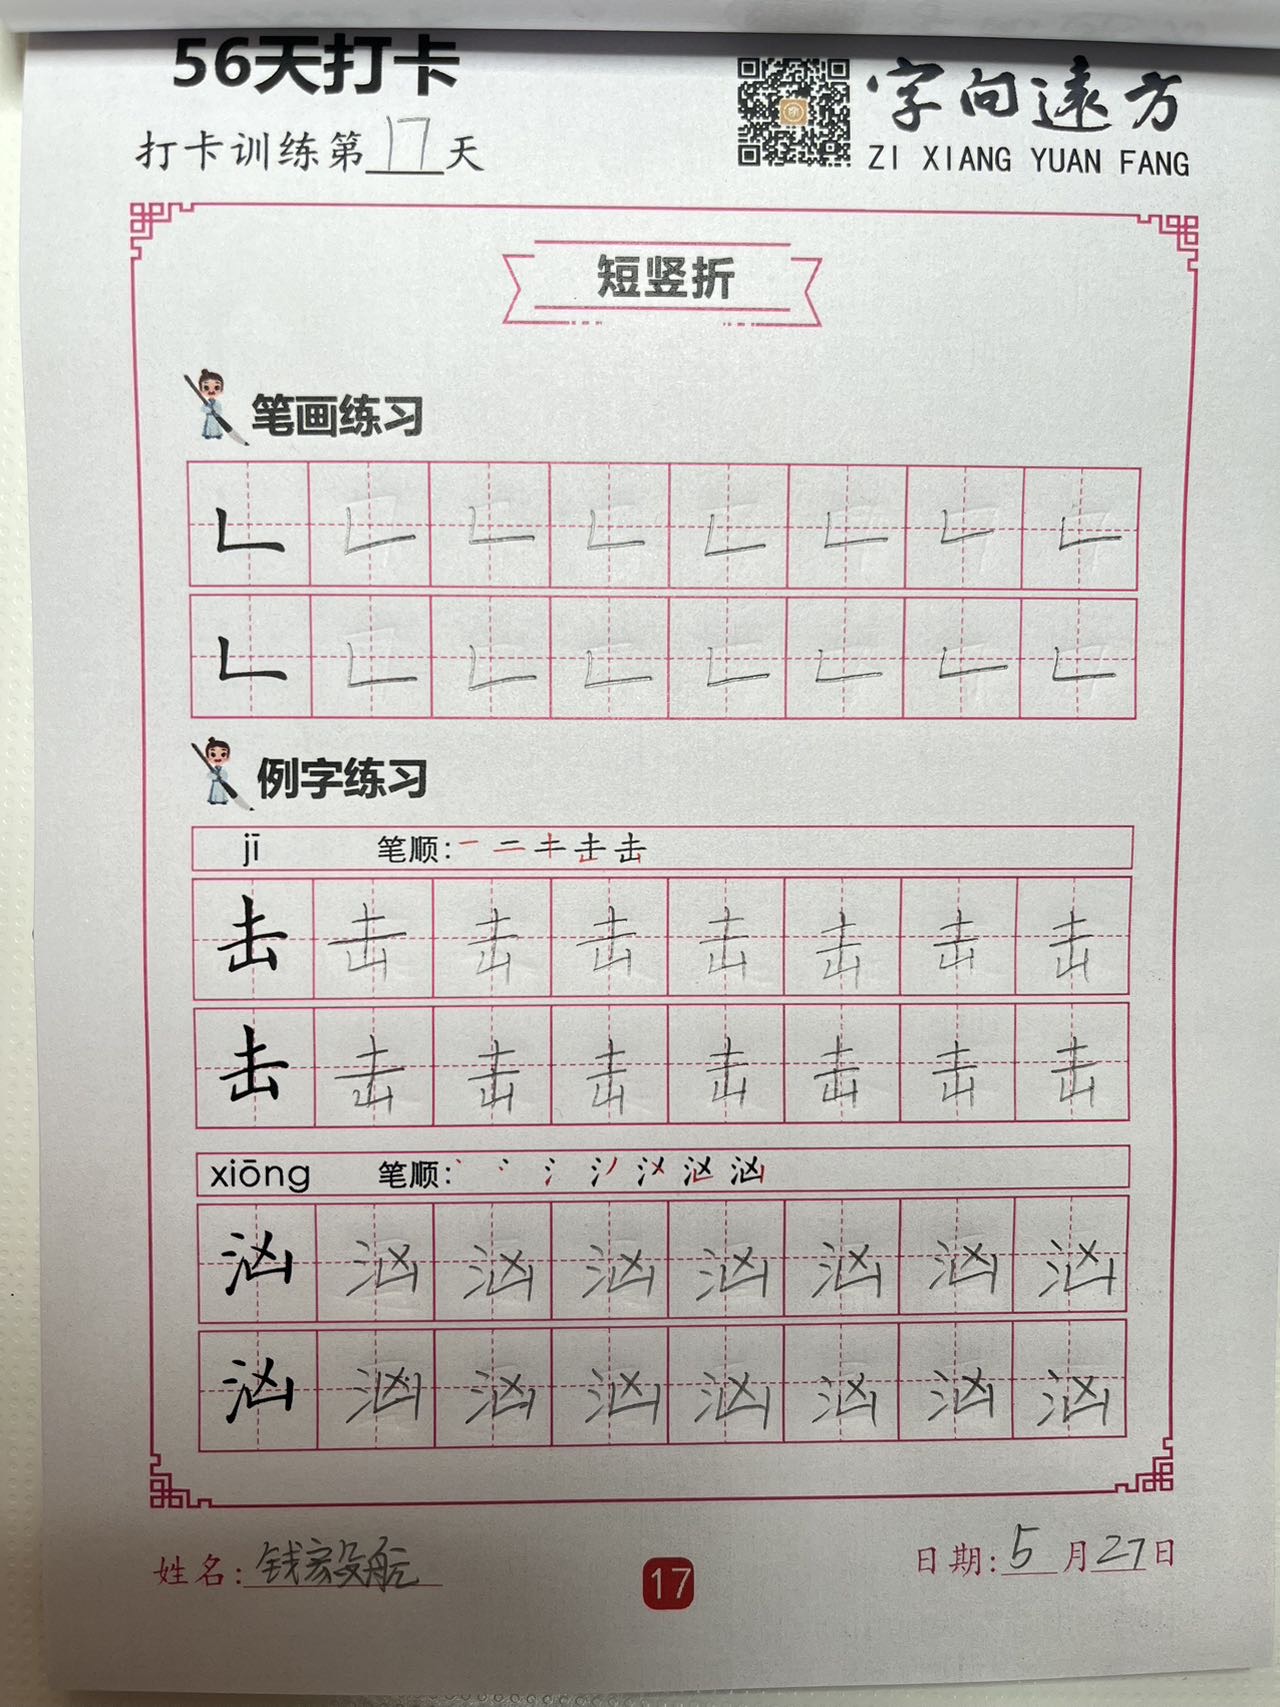 56天打卡
字向远方
打卡训练第17天
ZI XIANG YUAN FANG
短竖折
笔画练习
𠃊 𠃊 𠃊 𠃊 𠃊 𠃊 𠃊 𠃊
𠃊 𠃊 𠃊 𠃊 𠃊 𠃊 𠃊 𠃊
例字练习
jī 笔顺:
击 击 击 击 击 击 击 击
击 击 击 击 击 击 击 击
xiōng 笔顺:
汹 汹 汹 汹 汹 汹 汹 汹
汹 汹 汹 汹 汹 汹 汹 汹
姓名:钱毅航
日期:5月27日
17